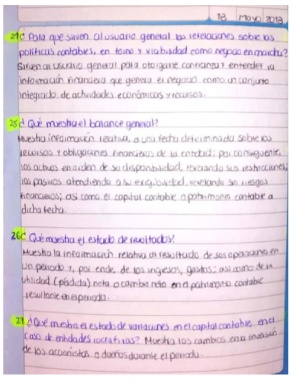 18 Mayo 2018
24 ¿ Para qué sirven al usuario general las revelaciones sobre las
políticas contables, en torno y viabilidad como negocio en marcha?
Sirven al usuario general para otorgarle confianza y entender la
información financiera que genera el negocio como un conjunto
integrado de actividades económicas y recursos.
25 ¿ Qué muestra el balance general?
Muestra información relativa, a una fecha determinada sobre los
recursos y obligaciones financieros de la entidad; por consiguiente,
los activos en orden de su disponibilidad, revelando sus restricciones;
los pasivos atendiendo a su exigibilidad, revelando sus riesgos
financieros; así como el capital contable o patrimonio contable a
dicha fecha.
26 ¿ Qué muestra el estado de resultados?
Muestra la información relativa al resultado de sus operaciones en
un periodo y, por ende, de los ingresos, gastos; así como de la
utilidad (pérdida) neta o cambio neto en el patrimonio contable
resultante en el periodo.
27 ¿ Qué muestra el estado de variaciones en el capital contable en el
caso de entidades lucrativas? Muestra los cambios en la inversión
de los accionistas o dueños durante el periodo.